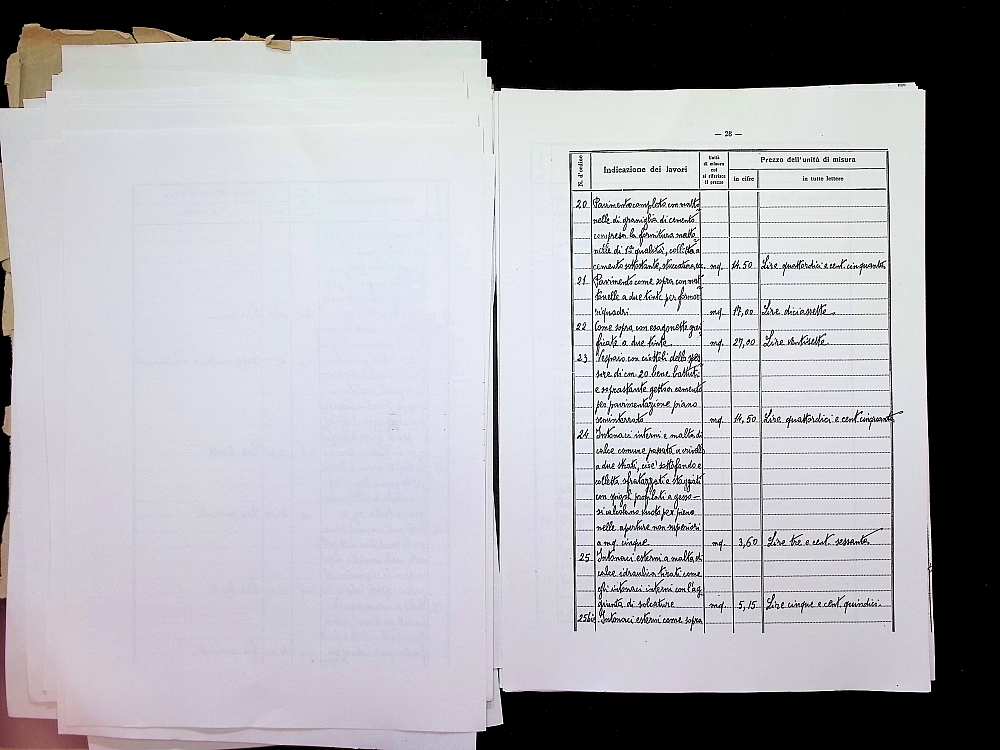 — 28 —
N. d'ordine
Indicazione dei lavori
Unità di misura cui si riferisce il prezzo
Prezzo dell'unità di misura
in cifre
in tutte lettere
20 Pavimento completo con matto
nelle di graniglia di cemento
compresa la fornitura matto
nelle di 1ª qualità, colletta a
cemento sottostante, stuccatura, ecc. mq. 14.50 Lire quattordici e cent. cinquanta
21 Pavimento come sopra con mat
tonelle a due tinte per formar
riquadri mq. 17,00 Lire diciassette
22 Come sopra con esagonette gre
ficate a due tinte. mq. 27,00 Lire ventisette
23 Vespaio con ciottoli dello spes
sore di cm. 20 bene battuti
e soprastante gettoso cemento
per pavimentazione piano
seminterrato mq. 14,50 Lire quattordici e cent. cinquanta
24 Intonaci interni e malta di
calce comune passata a crivello
a due strati, cioè sottofondo e
colletta sfratazzati e staggiati
con spigoli profilati a gesso —
si calcolano vuoto per pieno
nelle aperture non superiori
a mq. cinque. mq. 3,60 Lire tre e cent. sessanta
25 Intonaci esterni a malta di
calce idraulica tirati come
gli intonaci interni con l'ag
giunta di solcature mq. 5,15 Lire cinque e cent. quindici.
25bis Intonaci esterni come sopra